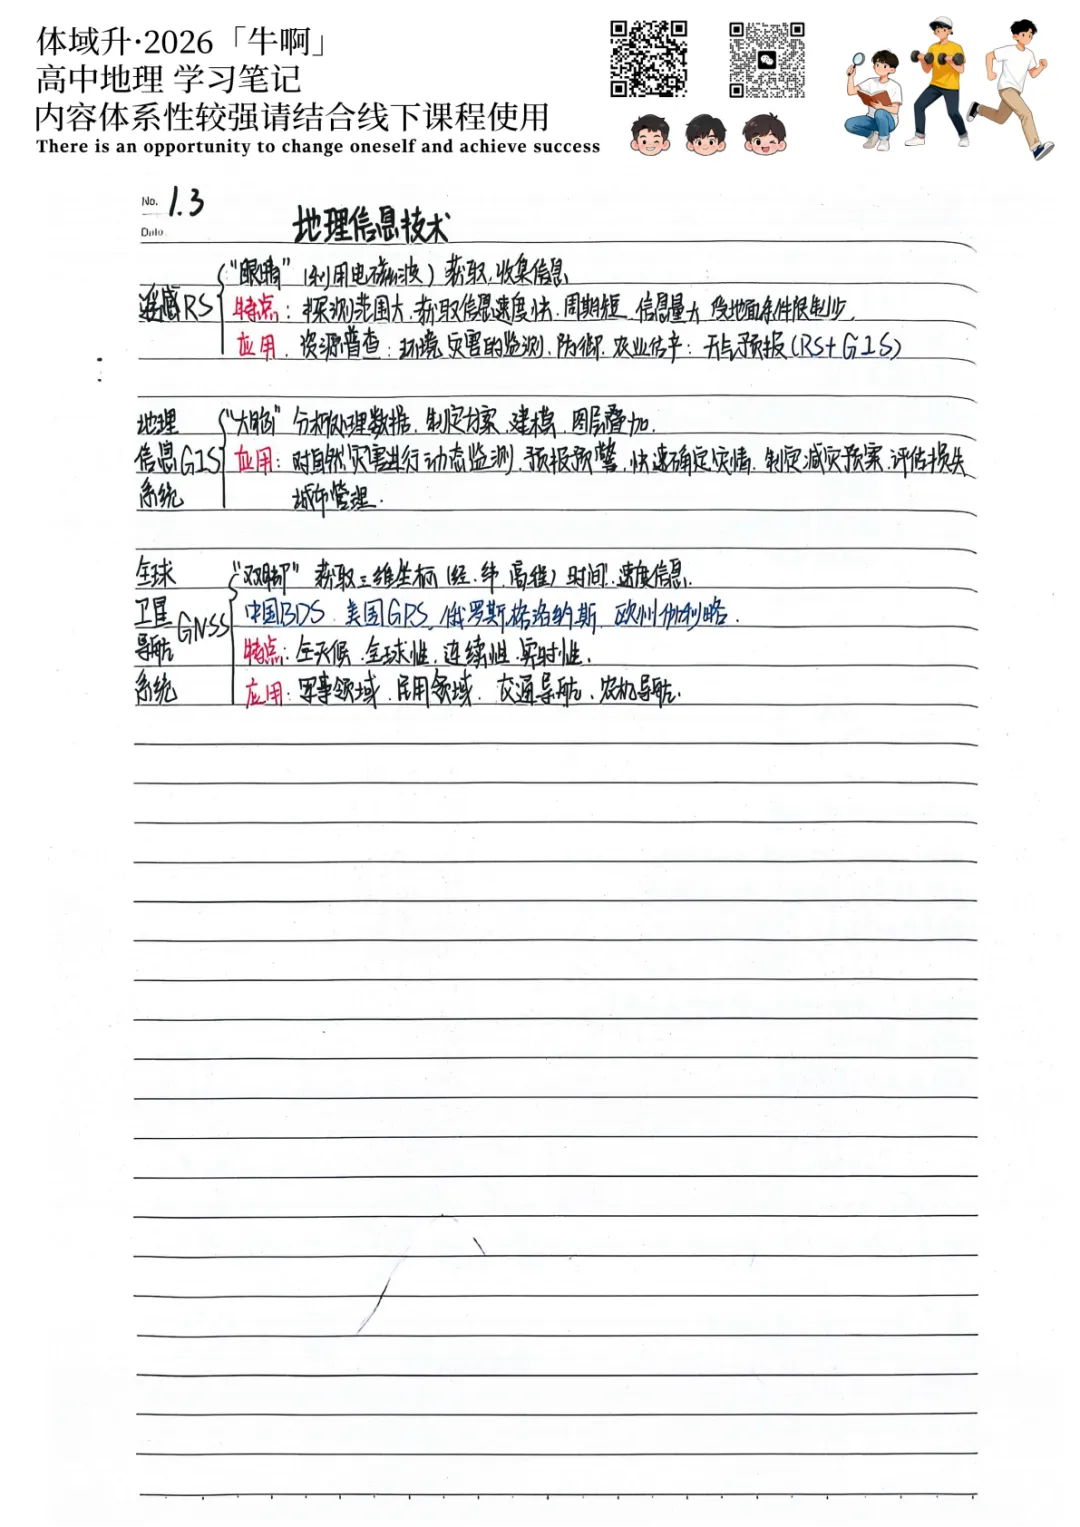 体域升·2026「牛啊」
高中地理 学习笔记
内容体系性较强请结合线下课程使用
There is an opportunity to change oneself and achieve success
No. 1.3
Date
地理信息技术
"眼睛"（利用电磁波）获取,收集信息
遥感RS 特点：探测范围大.获取信息速度快.周期短.信息量大 受地面条件限制少.
应用.资源普查：环境.灾害的监测、防御.农业估产：天气预报(RS+GIS)
地理 "大脑" 分析处理数据.制定方案.建模.图层叠加.
信息GIS 应用：对自然灾害进行动态监测.预报预警.快速确定灾情.制定减灾预案.评估损失
系统 城市管理.
全球 "双脚" 获取三维坐标（经.纬.高程）时间.速度信息.
卫星 GNSS 中国BDS.美国GPS.俄罗斯格洛纳斯.欧洲伽利略.
导航 特点：全天候.全球性.连续性.实时性.
系统 应用：军事领域.民用领域.交通导航.农机导航.